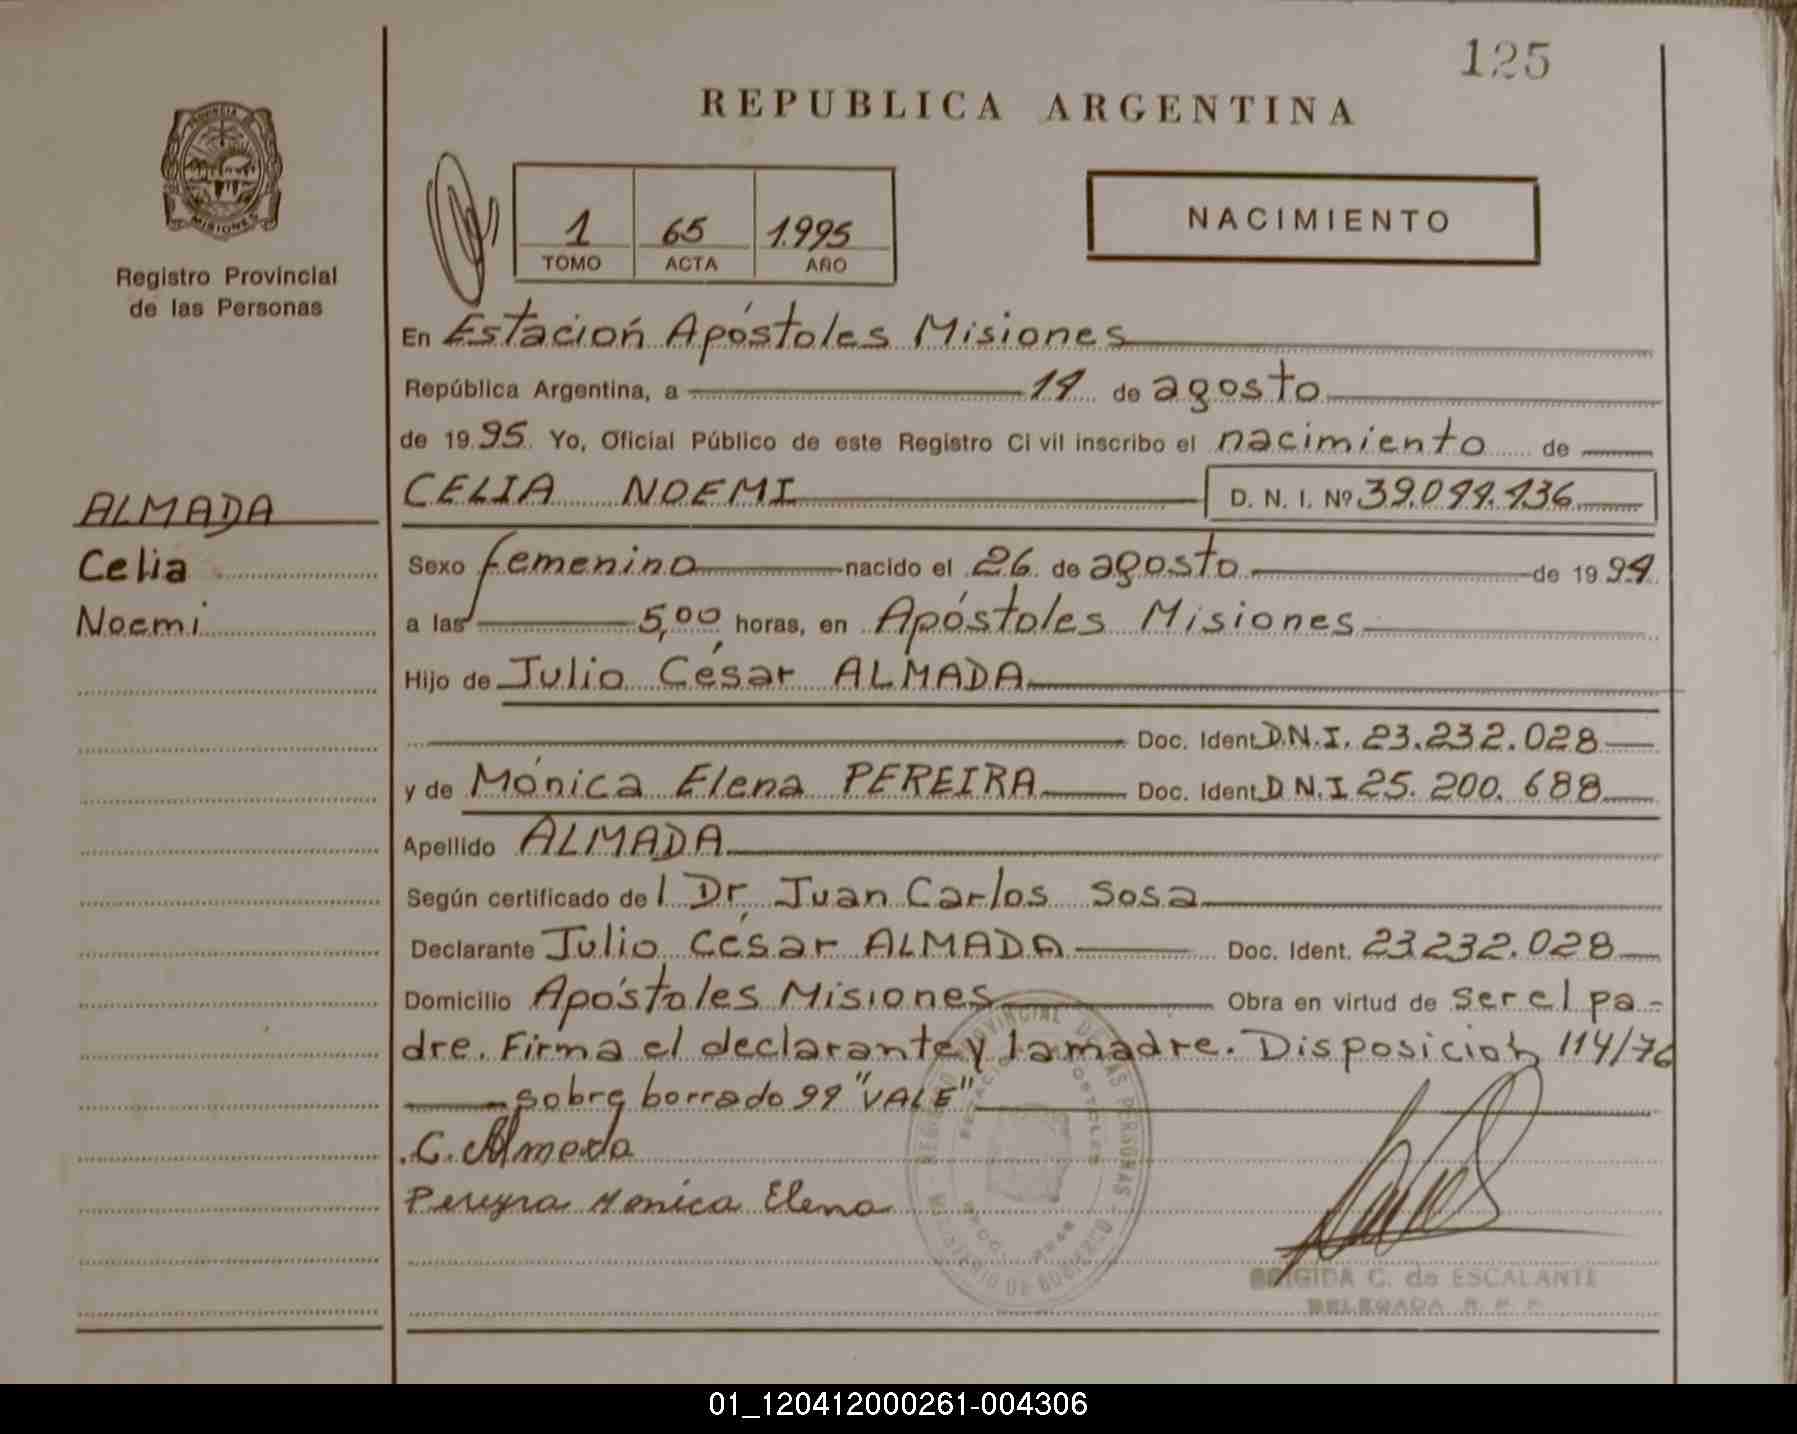 125
REPUBLICA ARGENTINA
PROVINCIA DE
MISIONES
Registro Provincial
de las Personas
1 65 1.995
TOMO ACTA AÑO
NACIMIENTO
En Estación Apóstoles Misiones
República Argentina, a 14 de agosto
de 19 95 Yo, Oficial Público de este Registro Civil inscribo el nacimiento de
CELIA NOEMI D. N. I. Nº 39.044.436
ALMADA
Celia
Noemi
Sexo femenino nacido el 26 de agosto de 19 94
a las 5,00 horas, en Apóstoles Misiones
Hijo de Julio César ALMADA
Doc. Ident. D.N.I. 23.232.028
y de Mónica Elena PEREIRA Doc. Ident. D.N.I 25.200.688
Apellido ALMADA
Según certificado de l Dr. Juan Carlos Sosa
Declarante Julio César ALMADA Doc. Ident. 23.232.028
Domicilio Apóstoles Misiones Obra en virtud de ser el pa-
dre. Firma el declarante y la madre. Disposición 114/76
sobre borrado 94 "VALE"
C. Almada
Pereyra Monica Elena
REGISTRO PROVINCIAL DE LAS PERSONAS
BRIGIDA C. de ESCALANTE
DELEGADA R. P. P.
01_120412000261-004306